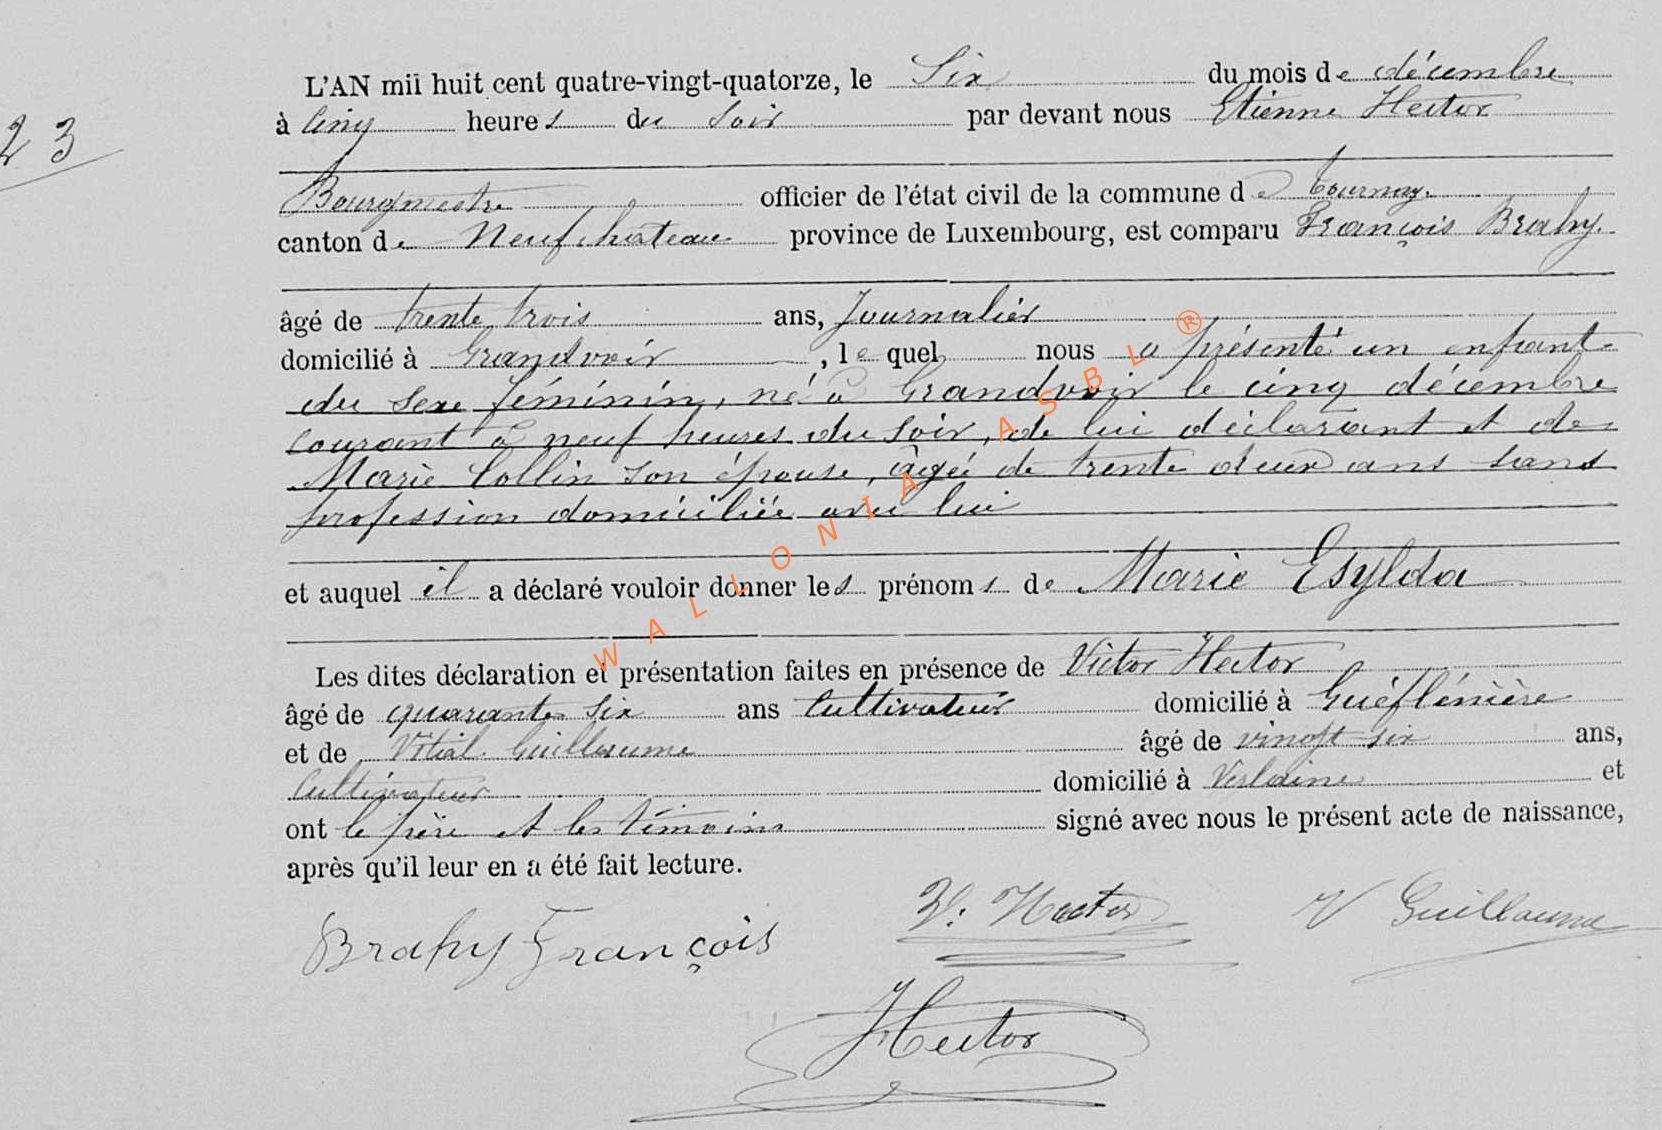 L'AN mil huit cent quatre-vingt-quatorze, le Six du mois de décembre
à Cinq heures du Soir par devant nous Etienne Hector
23
Bourgmestre officier de l'état civil de la commune de Tournay.
canton de Neufchâteau province de Luxembourg, est comparu François Brahy.
âgé de trente trois ans, Journalier
domicilié à Grandvoir, lequel nous a présenté un enfant
du sexe féminin, né à Grandvoir le cinq décembre
courant à neuf heures du soir, de lui déclarant et de
Marie Collin son épouse, âgée de trente deux ans sans
profession domiciliée avec lui
et auquel il a déclaré vouloir donner les prénoms de Marie Esylda
Les dites déclaration et présentation faites en présence de Victor Hector
âgé de quarante six ans Cultivateur domicilié à
et de Vital Guillaume âgé de vingt six ans,
Cultivateur domicilié à Verlaine et
ont le père et les témoins signé avec nous le présent acte de naissance,
après qu'il leur en a été fait lecture.
Brahy François V. Hector V Guillaume
Hector
WALLONIA ASBL ®